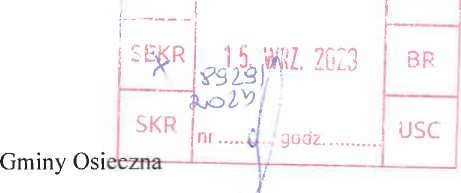 SEKR 15. WRZ. 2023 BR
8929/
2023
SKR nr ........ godz. ............ USC
Gminy Osieczna